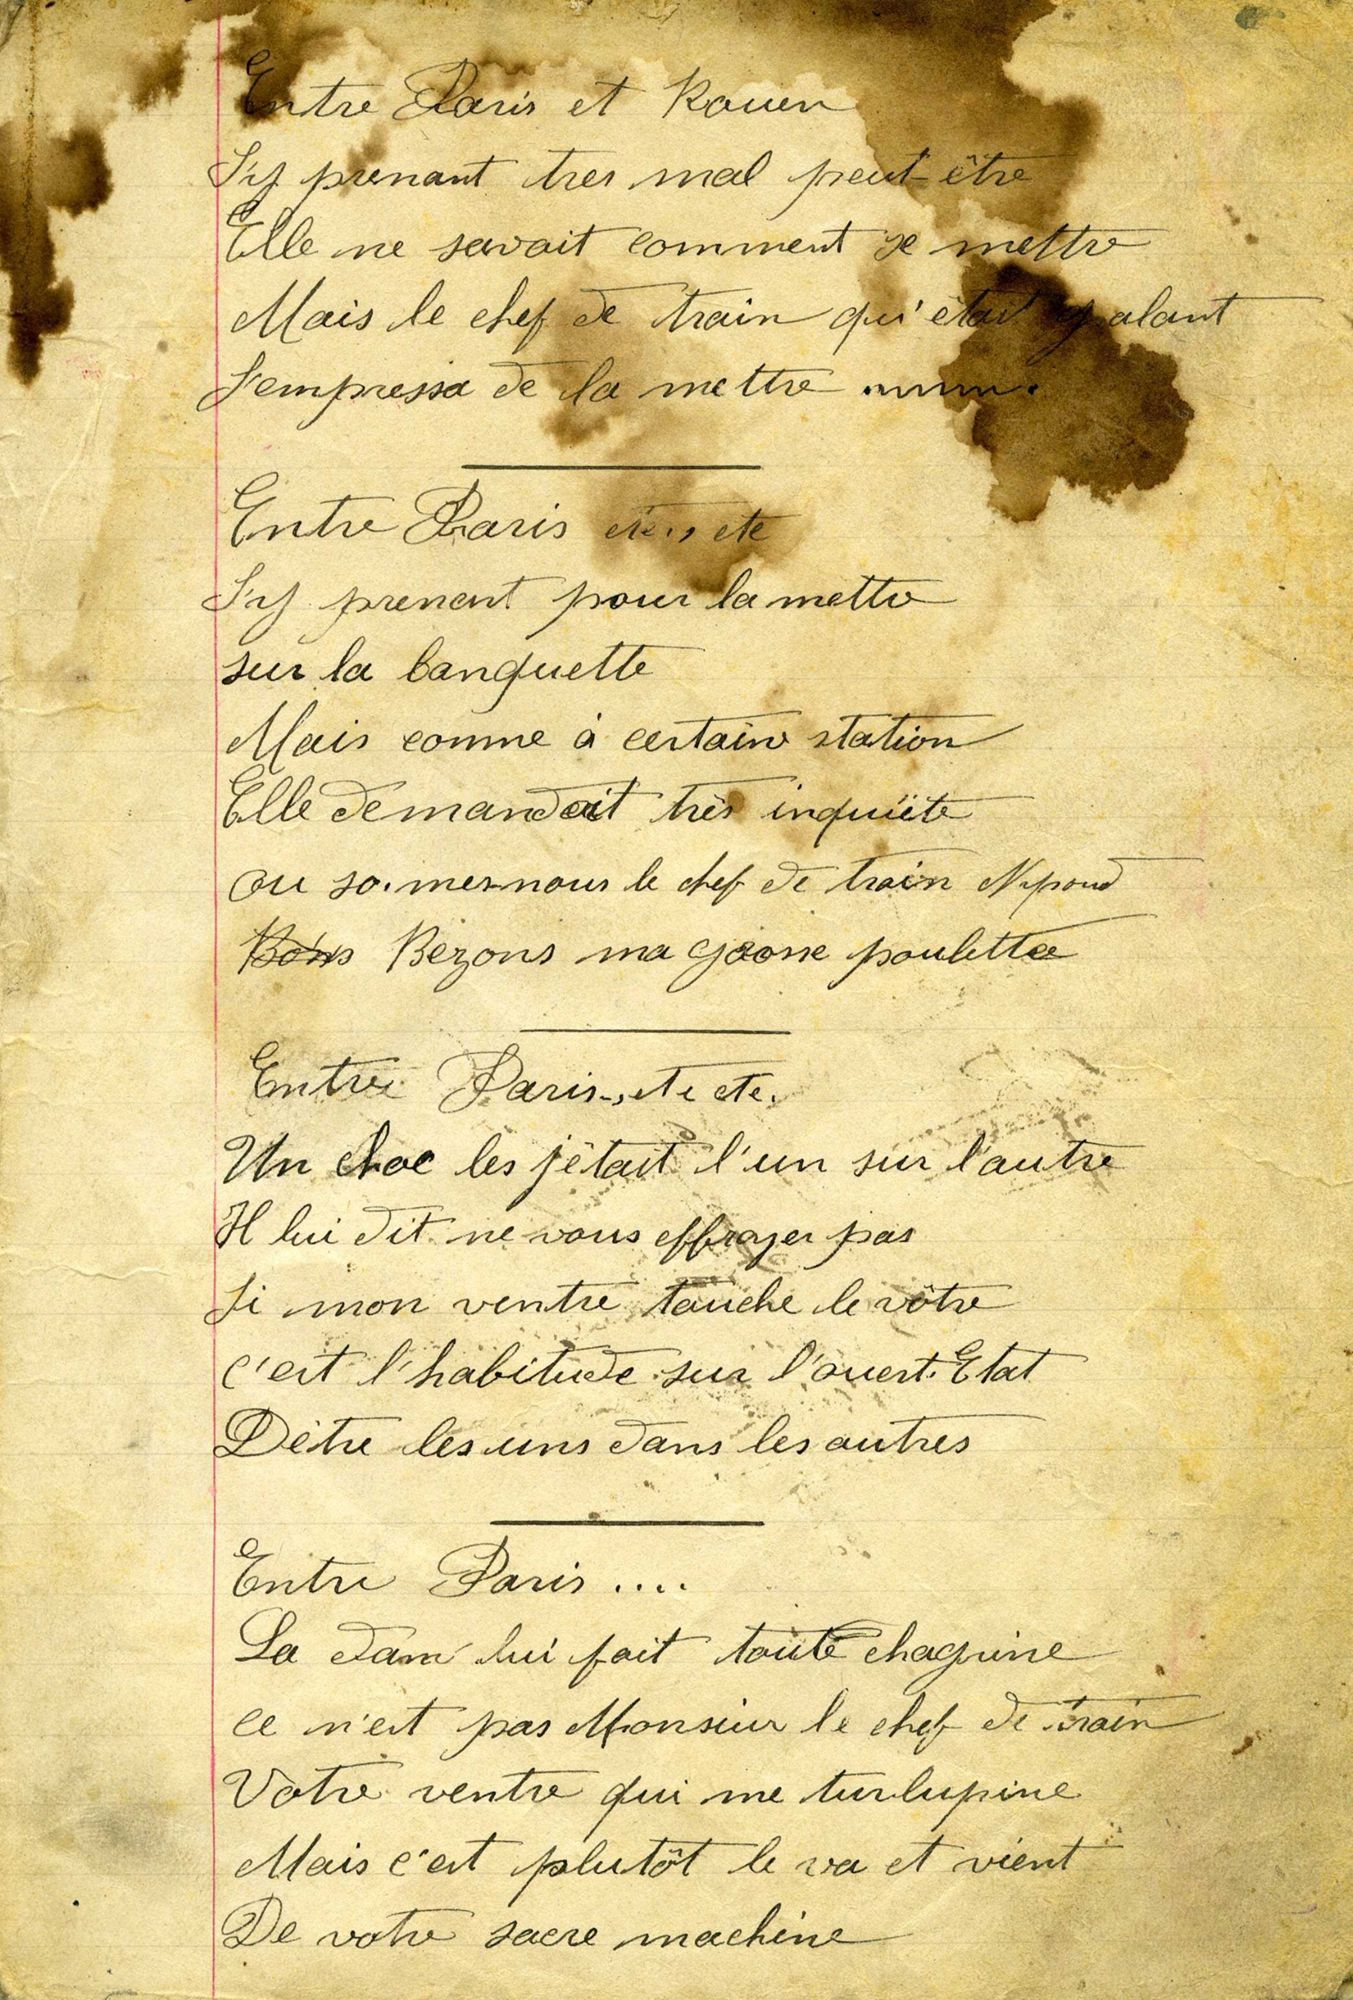 Entre Paris et Rouen
S'y prenant tres mal peut-être
Elle ne savait comment se mettre
Mais le chef de train qui était galant
S'empressa de la mettre
Entre Paris etc., etc
S'y prenent pour la mettre
sur la banquette
Mais comme à certaine station
Elle demandait très inquiète
ou sommes-nous le chef de train répond
Bezons ma grosse poulette
Entre Paris.., etc etc.
Un choc les jètait l'un sur l'autre
Il lui dit ne vous effrayer pas
Si mon ventre touche le vôtre
c'est l'habitude sur l'ouest-Etat
D'être les uns dans les autres
Entre Paris ....
La dam lui fait toute chagrine
ce n'est pas Monsieur le chef de train
Votre ventre qui me turlupine
Mais c'est plutôt le va et vient
De votre sacre machine